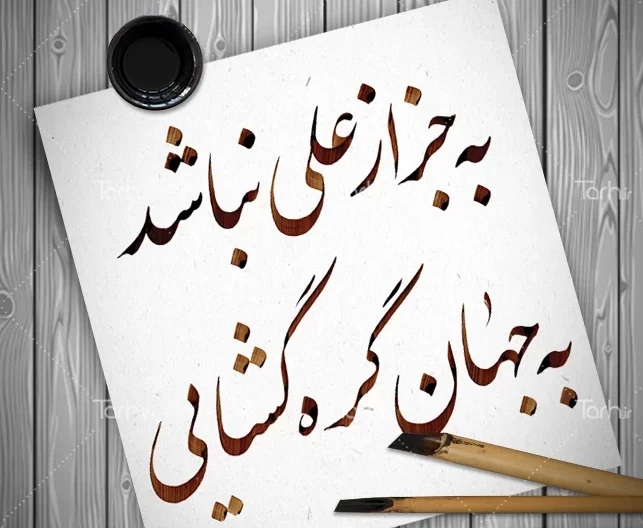 به جز از علی نباشد
به جهان گره گشایی
Tarhir
Tarhir
Tarhir
Tarhir
Tarhir